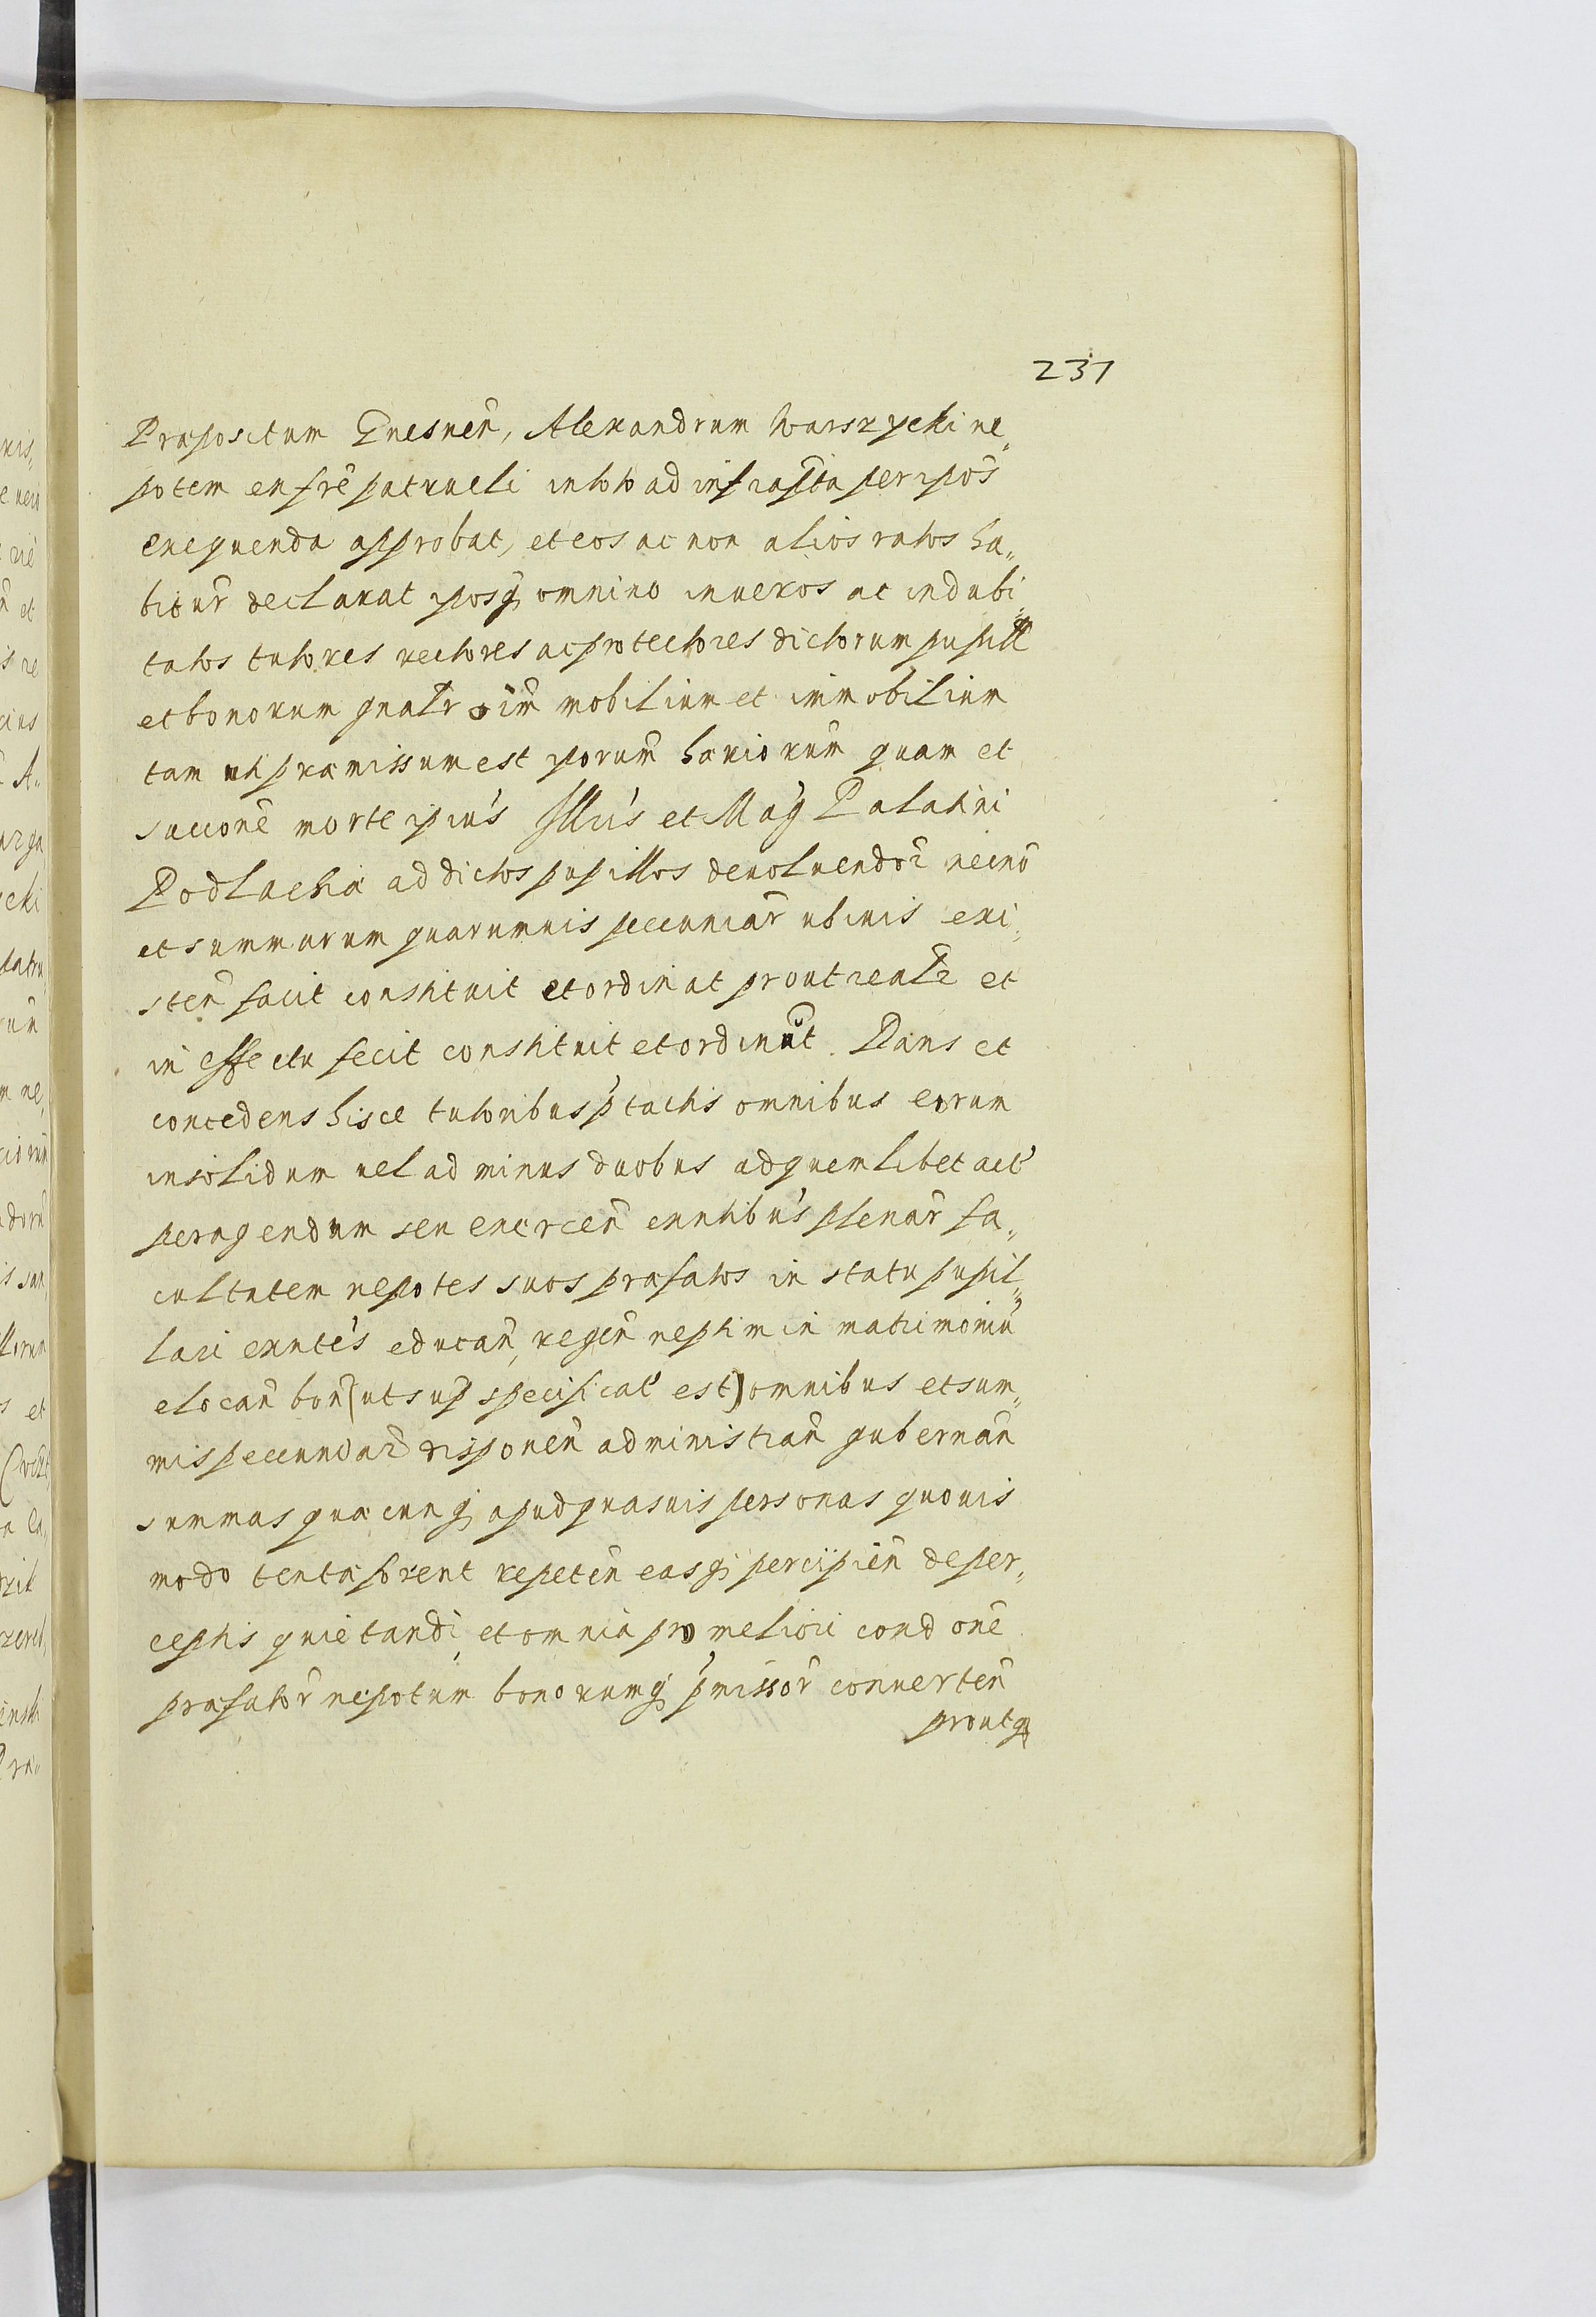 237
Præpositum Gnesnen̄, Alexandrum Warszycki ne„
potem ex frē patrueli in toto ad infrascripta per ipos̄
exequenda approbat, et eos ac non alios ratos ha„
bitur̄ declarat iposq̧ omnino in veros ac indubi„
tatos tutores rectores ac protectores dictorum pupill
et bonorum gnalr̄ oīm mobilium et immobilium
tam uti præmissum est iporum̄ hæniorum̄ quam et
succone᷃ morte ipius̄ Illris̄ et Mag̃ Palatini
Podlachiæ ad dictos pupillos devoluendor̄ necno᷃
et summarum quarumvis pecuniar̄ ubivis exi„
sten̄ facit constituit et ordinat prout realr̄ et
in effectu fecit constituit et ordinat. Dans et
concedens hisce tutoribus p̄tactis omnibus eorum
in solidum vel ad minus duobus ad quemlibet act̄
peragendum seu exercen̄ exntibus̄ plenar̄ fa„
cultatem nepotes suos præfatos in statu pupil„
lari exntes̄ educan̄, regen̄ neptim in matrimoniu᷃
elocan̄ bon̄ (ut sup̄ specificat̄ est) omnibus et sum„
mis pecuniar̄ disponen̄ administran̄ gubernan̄
summas quæcunq̧ apud quasvis personas quovis
modo tentæ forent repeten̄ easq̧ percipien̄ de per„
ceptis quietandi, et omnia pro meliori condone᷃
præfator̄ nepotum bonorumq̧ p̄missor̄ converten̄
proutq̧